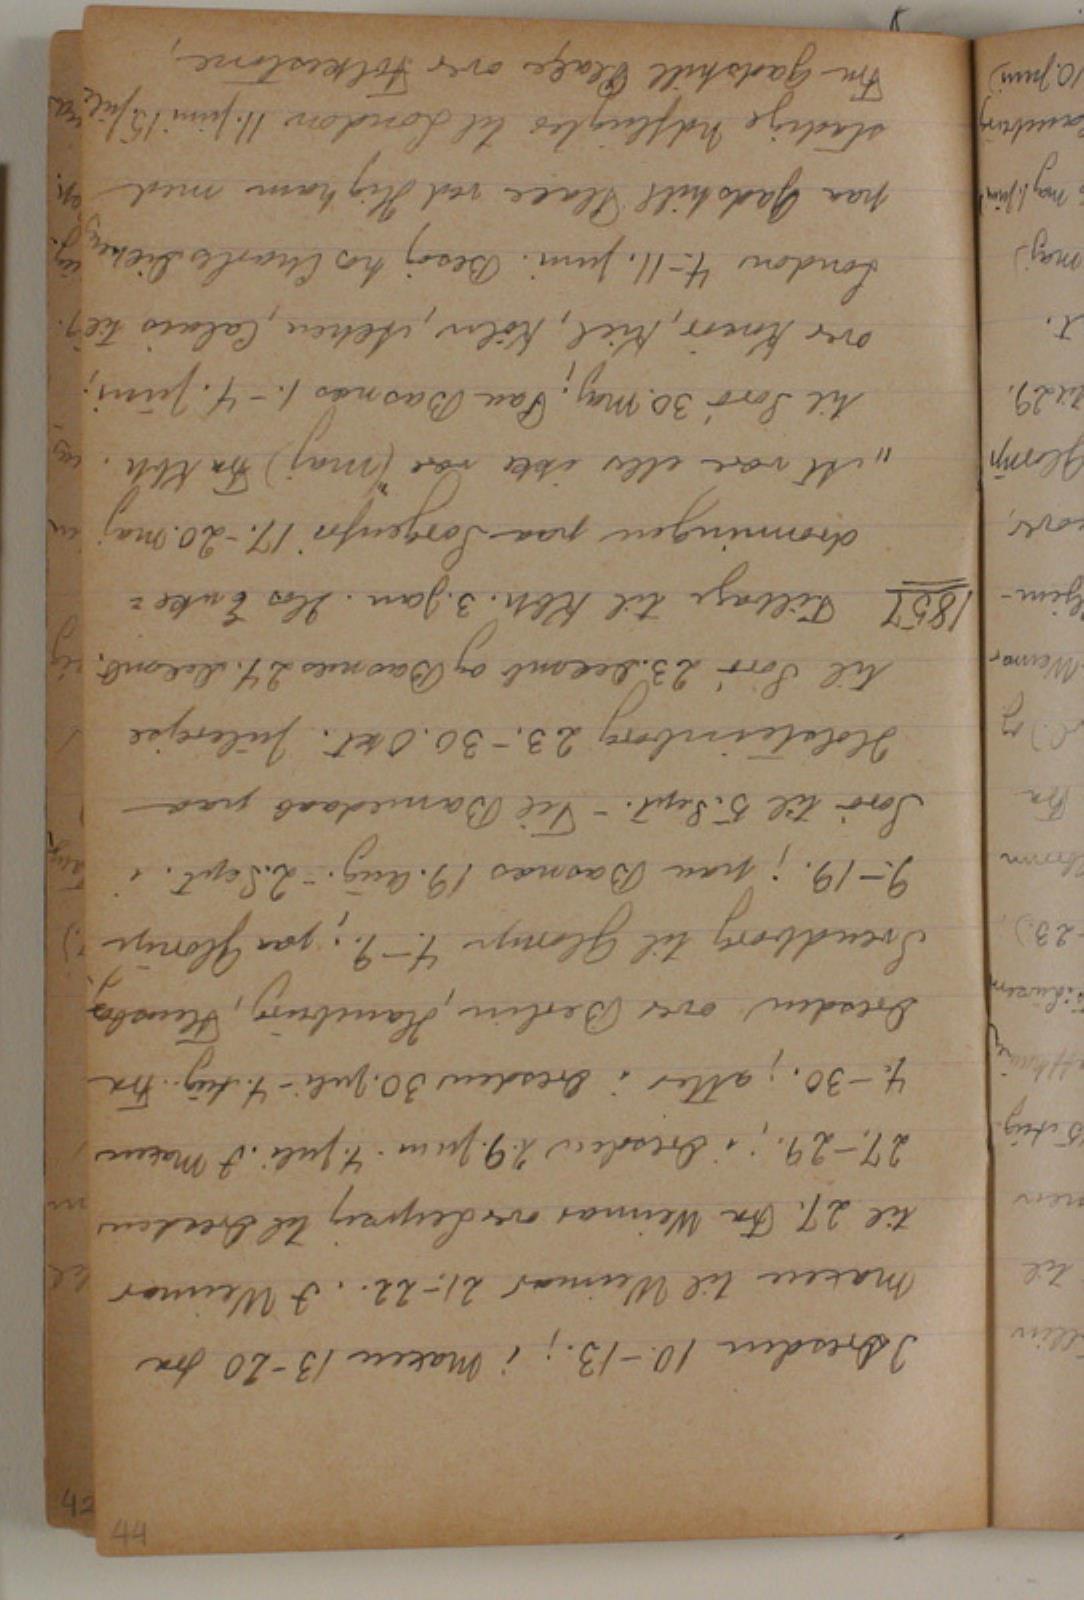 I Dresden 10.-13.; i Maxen 13-20 fra
Maxen til Weimar 21.-22. I Weimar
til 27. Fra Weimar over Leipzig til Dresden
27.-29.; i Dresden 29. juni - 4. juli. I Maxen
4.-30.; atter i Dresden 30. juli - 4. aug. Fra
Dresden over Berlin, Hamburg, Flensborg,
Svendborg til Glorup 4.-9.; paa Glorup
9.-19.; paa Basnæs 19. aug. - 2. Sept. i
Sorø til 5. Sept. - Til Barnedaab paa
Holsteinborg 23.-30. Okt. Julerejse
til Sorø 23. decemb og Basnæs 24. decemb.
1857 Tilbage til Kbh. 3. jan. Hos Enke=
dronningen paa Sorgenfri 17.-20. maj
"At være eller ikke være" (maj) Fra Kbh.
til Sorø 30. maj; Paa Basnæs 1.-4. juni;
over Korsør, Kiel, Köln, Aachen, Calais til
London 4.-11. juni. Besøg hos Charles Dickens
paa Gadshill Place ved Higham med
stadige Udflugter til London 11. juni 15. juli
Fra Gadshill Place over Folkestone,
44
42